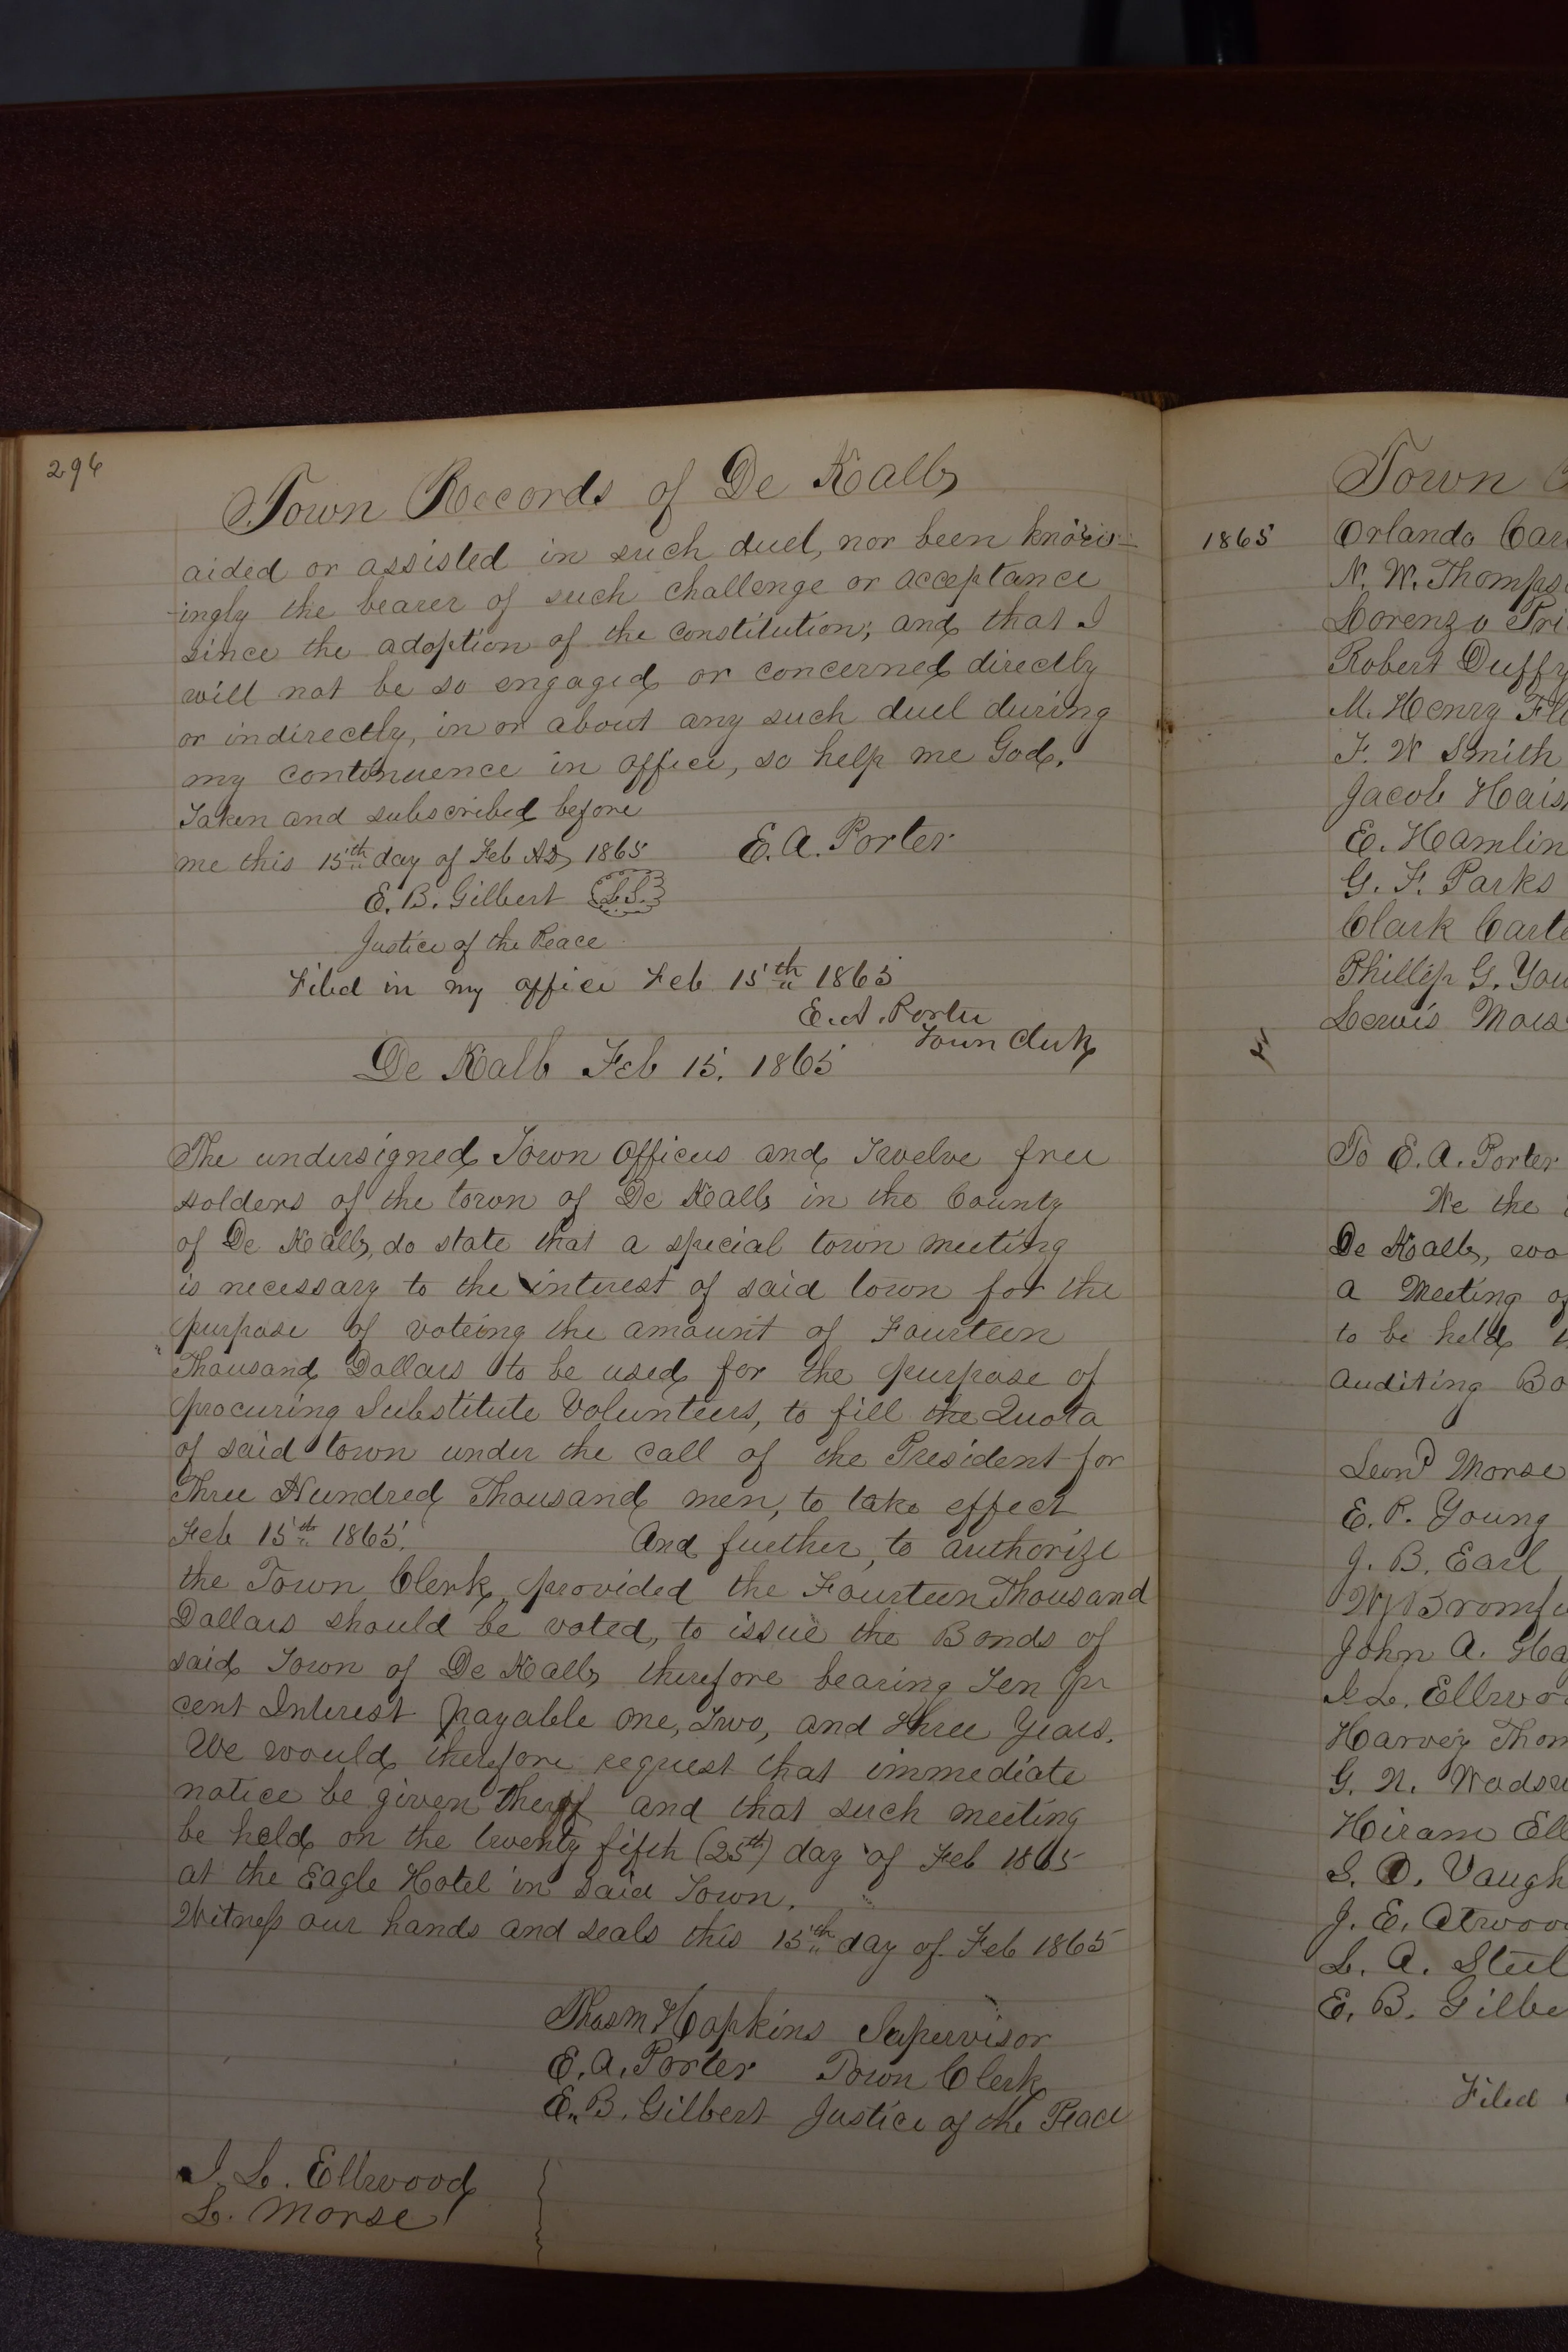 296
Town Records of De Kalb
aided or assisted in such duel, nor been know-
-ingly the bearer of such challenge or acceptance
since the adoption of the constitution; and that I
will not be so engaged or concerned directly
or indirectly, in or about any such duel during
my continuence in office, so help me God.
Taken and subscribed before
me this 15th day of Feb AD, 1865 E. A. Porter
E. B. Gilbert L.S.
Justice of the Peace
Filed in my office Feb 15th 1865
E. A. Porter
Town Clerk
De Kalb Feb 15, 1865
The undersigned Town Officers and Twelve free
holders of the town of De Kalb in the County
of De Kalb, do state that a special town meeting
is necessary to the interest of said town for the
purpose of voteing the amount of Fourteen
Thousand Dollars to be used for the purpose of
procuring Substitute Volunteers, to fill the Quota
of said town under the call of the President for
Three Hundred Thousand men, to take effect
Feb 15th 1865. And further, to authorize
the Town Clerk, provided the Fourteen Thousand
Dollars should be voted, to issue the Bonds of
said Town of De Kalb therefore bearing Ten Pr
cent Interest payable one, Two, and three Years.
We would therefore request that immediate
notice be given therof and that such meeting
be held on the twenty fifth (25th) day of Feb 1865
at the Eagle Hotel in said Town.
Witness our hands and seals this 15th day of Feb 1865
Thos M Hopkins Supervisor
E. A. Porter Town Clerk
E. B. Gilbert Justice of the Peace
I. L. Ellwood
L. Morse
Town
1865 Orlando Car
N. W. Thomps
Lorenzo Pri
Robert Duffy
M. Henry Fl
F. W Smith
Jacob Hais
E. Hamlin
G. F. Parks
Clark Carte
Phillip G. You
Lewis Mors
To E. A. Porter
We the
De Kalb, wo
a Meeting of
to be held
Auditing Bo
Leond Morse
E. P. Young
J. B. Earl
John A. Ha
I L. Ellwoo
Harvey Thom
G. N. Wadsw
Hiram Ell
S. O. Vaugh
J. E. Atwoo
L. A. Steel
E. B. Gilbe
Filed